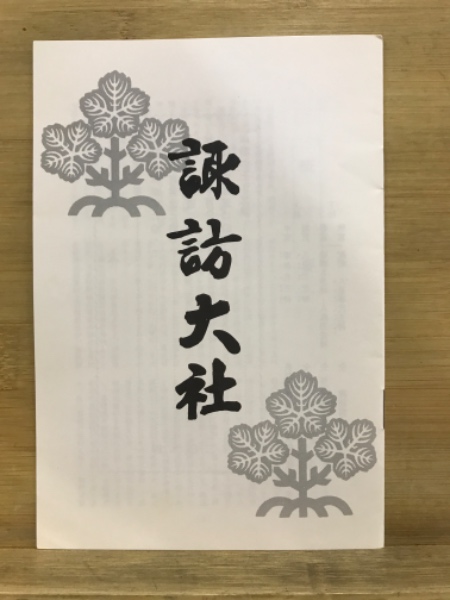 諏訪大社